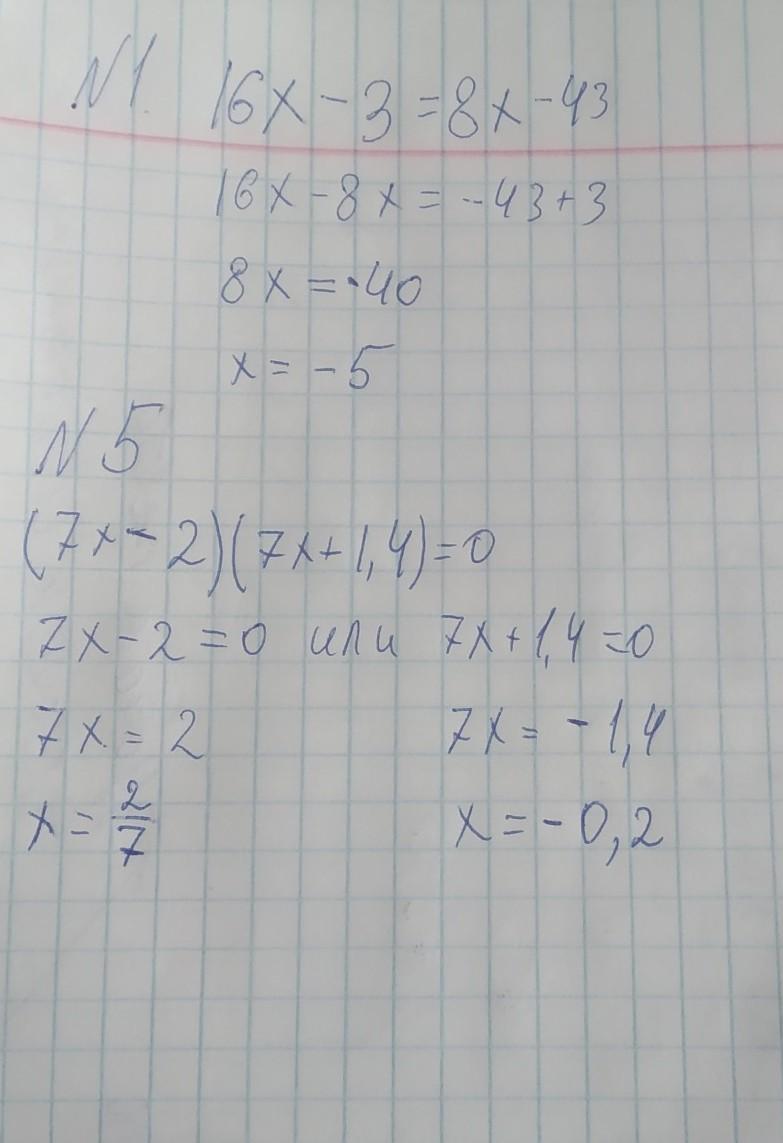 N1. 16x - 3 = 8x - 43
16x - 8x = -43 + 3
8x = -40
x = -5
N5
(7x - 2)(7x + 1,4) = 0
7x - 2 = 0 или 7x + 1,4 = 0
7x = 2 7x = -1,4
x = 2/7 x = -0,2